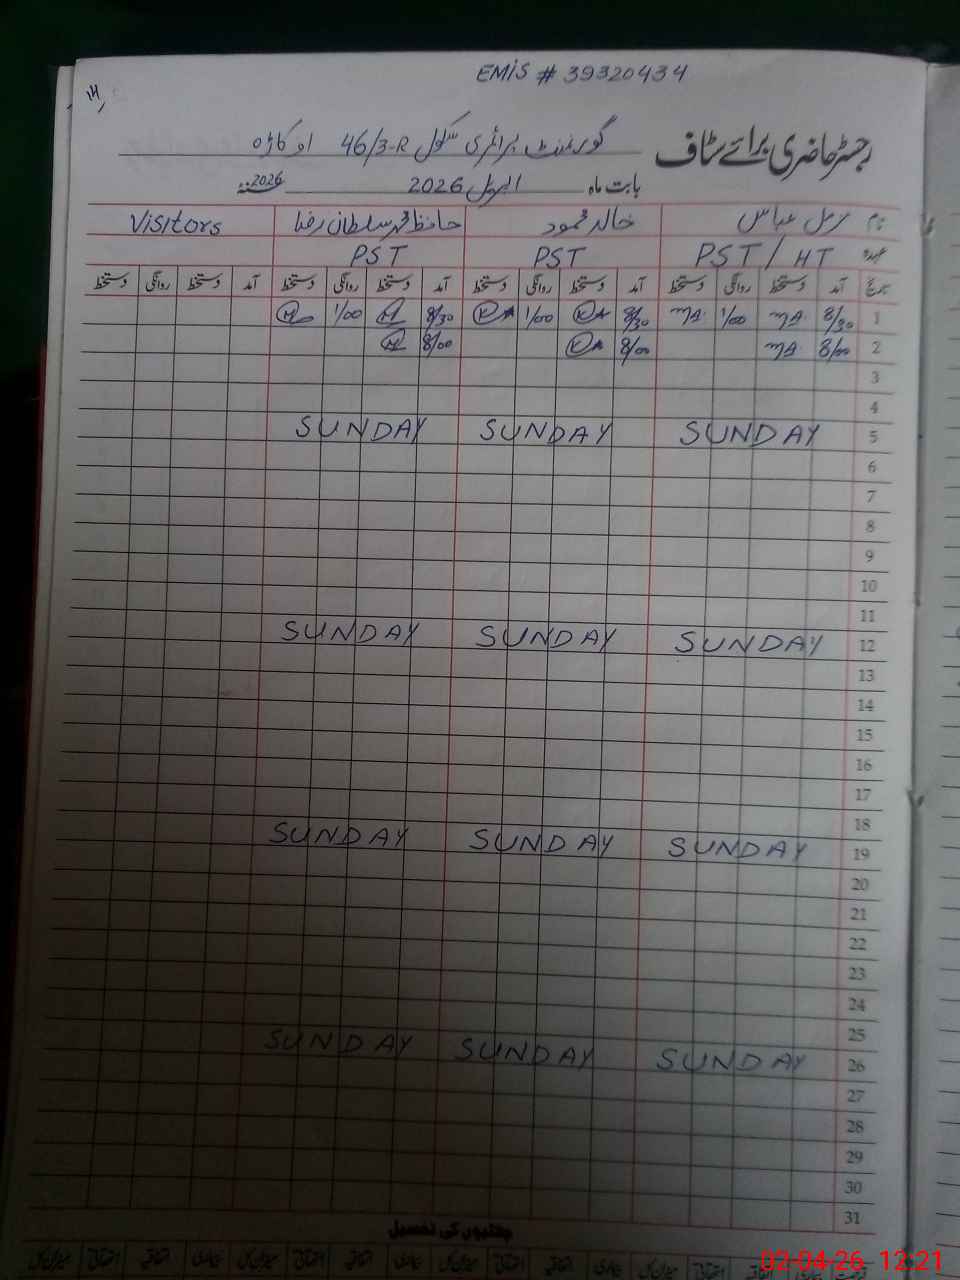 EMIS # 39320434
14
رجسٹر حاضری برائے سٹاف گورنمنٹ پرائمری سکول 46/3-R اوکاڑہ
بابت ماہ اپریل 2026 سنہ 2026
نام عباس خالد محمود حافظ محمد سلطان رضا Visitors
عہدہ PST / HT PST PST
تاریخ آمد دستخط روانگی دستخط آمد دستخط روانگی دستخط آمد دستخط روانگی دستخط آمد دستخط روانگی دستخط
1 8/30 MA. 1/00 MA. 8/30 1/00 8/30 1/00
2 8/00 MA. 8/00 8/00
3
4
5 SUNDAY SUNDAY SUNDAY
6
7
8
9
10
11
12 SUNDAY SUNDAY SUNDAY
13
14
15
16
17
18
19 SUNDAY SUNDAY SUNDAY
20
21
22
23
24
25
26 SUNDAY SUNDAY SUNDAY
27
28
29
30
31
چھٹیوں کی تفصیل
02-04-26 12:21